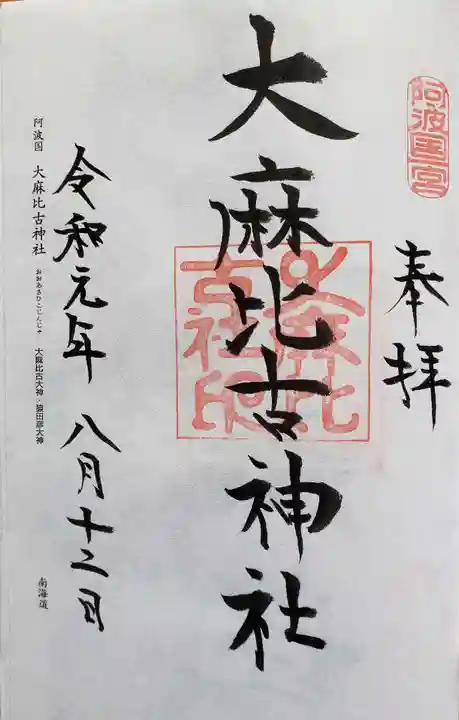 阿波国一宮
奉拝
大麻比古神社
令和元年 八月十二日
阿波国 大麻比古神社 おおあさひこじんじゃ 大麻比古大神・猿田彦大神
南海道